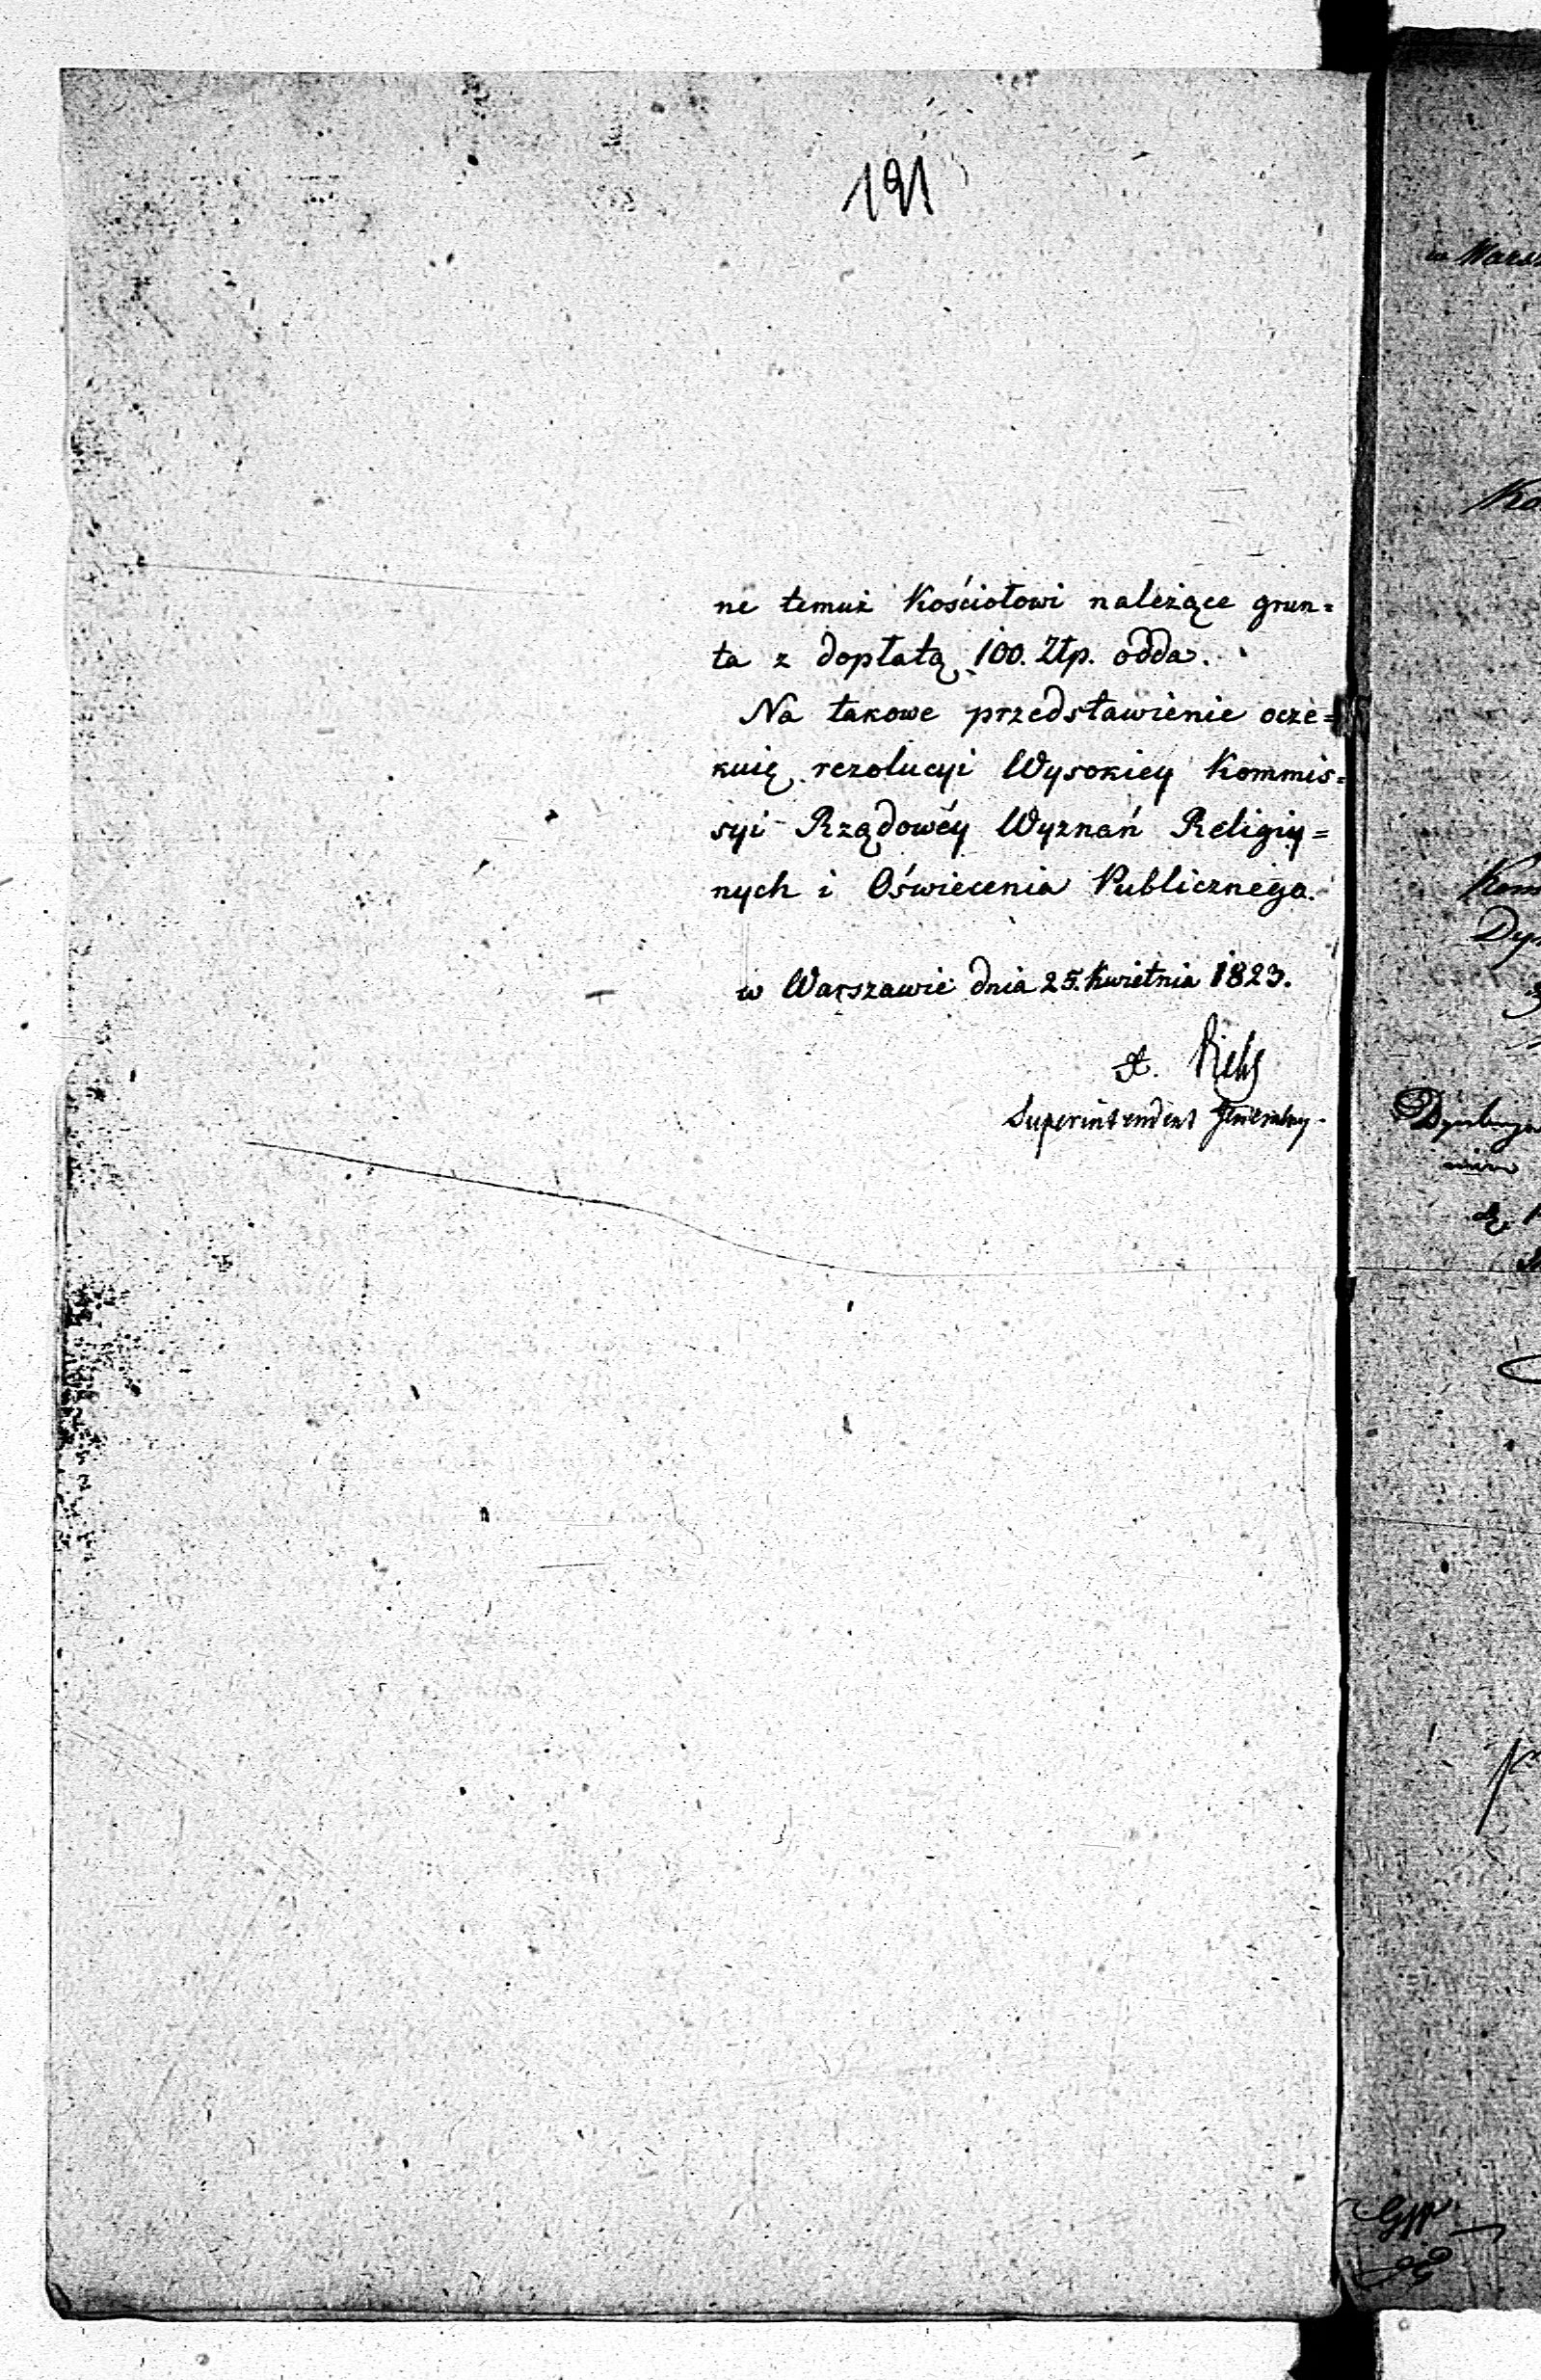 191
ne temuż Kościołowi należące grun=
ta z dopłatą 100. Złp. odda.
Na takowe przedstawienie ocze=
kuię rezolucyi Wysokiey Kommis=
syi Rządowéy Wyznań Religiy=
nych i Oświecenia Publicznego.
w Warszawie dnia 25. Kwietnia 1823.
Superintendent Generalny.
w Warsz
Ko
Kom
Dyr